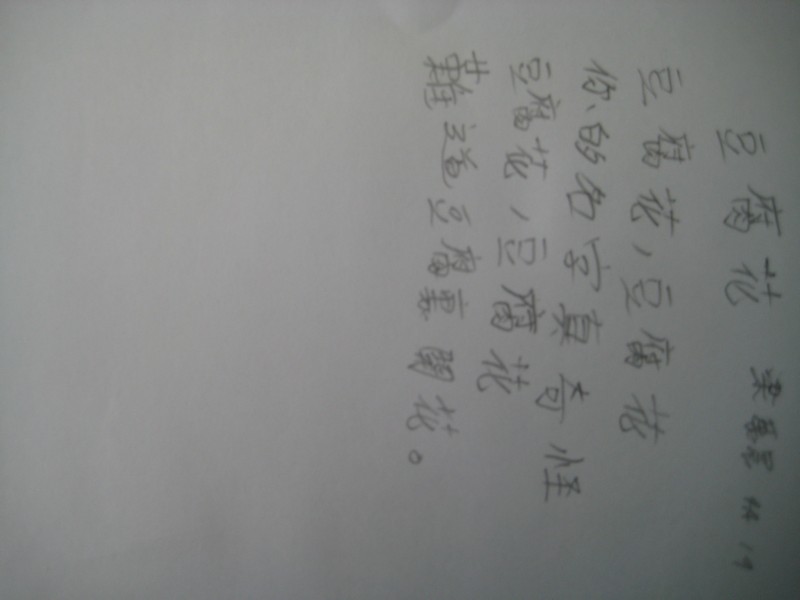 豆腐花
豆腐花，豆腐花
你的名字真奇怪
豆腐花，豆腐花
難道豆腐裏開花。